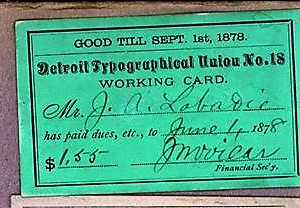 GOOD TILL SEPT. 1st, 1878.
Detroit Typographical Union No. 18
WORKING CARD.
Mr. J. A. Labadie
has paid dues, etc., to June 1, 1878
$1.55
Financial Sec'y.